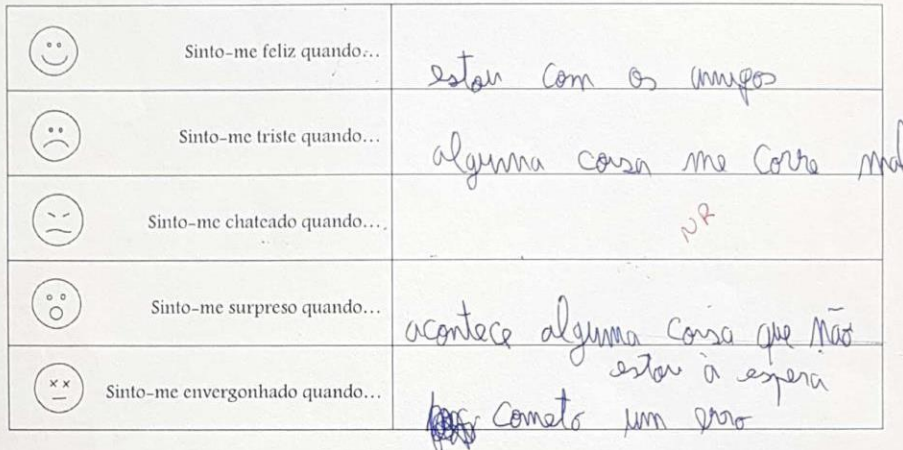 Sinto-me feliz quando...
estou com os amigos
Sinto-me triste quando...
alguma coisa me corre mal
Sinto-me chateado quando...
NR
Sinto-me surpreso quando...
acontece alguma coisa que não
estou à espera
Sinto-me envergonhado quando...
cometo um erro